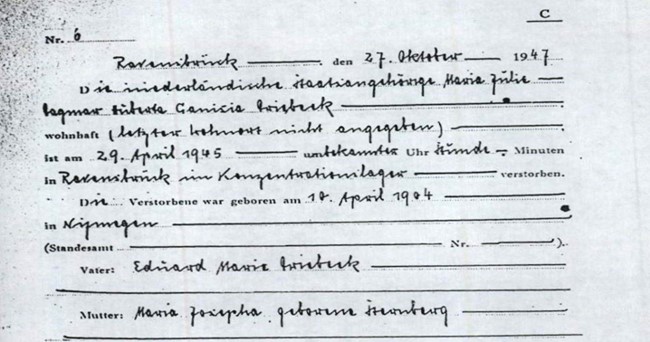 C
Nr. 6
Ravensbrück den 27. Oktober 1947
Die niederländische Staatsangehörige Maria Julie
Dagmar Huberta Canisia Driebeck
wohnhaft (letzter Wohnort nicht angegeben)
ist am 29. April 1945 unbekannter Uhr Stunde – Minuten
in Ravensbrück im Konzentrationslager verstorben.
Die Verstorbene war geboren am April 1904
in Nijmegen
(Standesamt Nr. ).
Vater: Eduard Marie Driebeck
Mutter: Maria Josepha geborene Sternberg